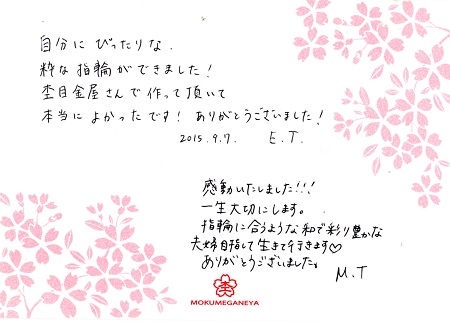 自分にぴったりな、
粋な指輪ができました！
杢目金屋さんで作って頂いて
本当によかったです！ありがとうございました！
2015.9.7. E.T.
感動いたしました!!!
一生大切にします。
指輪に合うような和で彩り豊かな
夫婦目指して生きて行きます♡
ありがとうございました。
M.T
杢
MOKUMEGANEYA